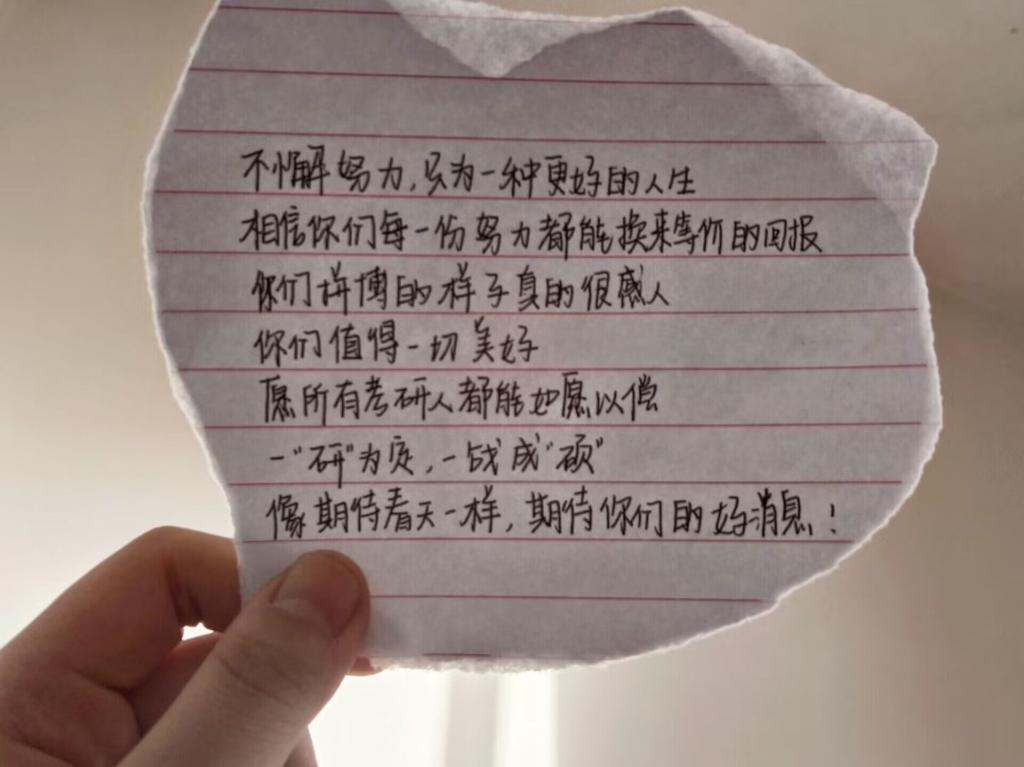 不懈努力,只为一种更好的人生
相信你们每一份努力都能换来等价的回报
你们拼博的样子真的很感人
你们值得一切美好
愿所有考研人都能如愿以偿
一"研"为定,一战成"硕"
像期待春天一样,期待你们的好消息!